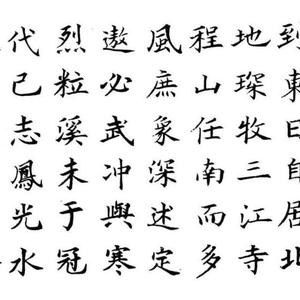 到東日自居北
地琛牧三江寺
程山任南而多
風庶象深述定
遨必武冲與寒
烈粒溪未于冠
代己志鳳光水